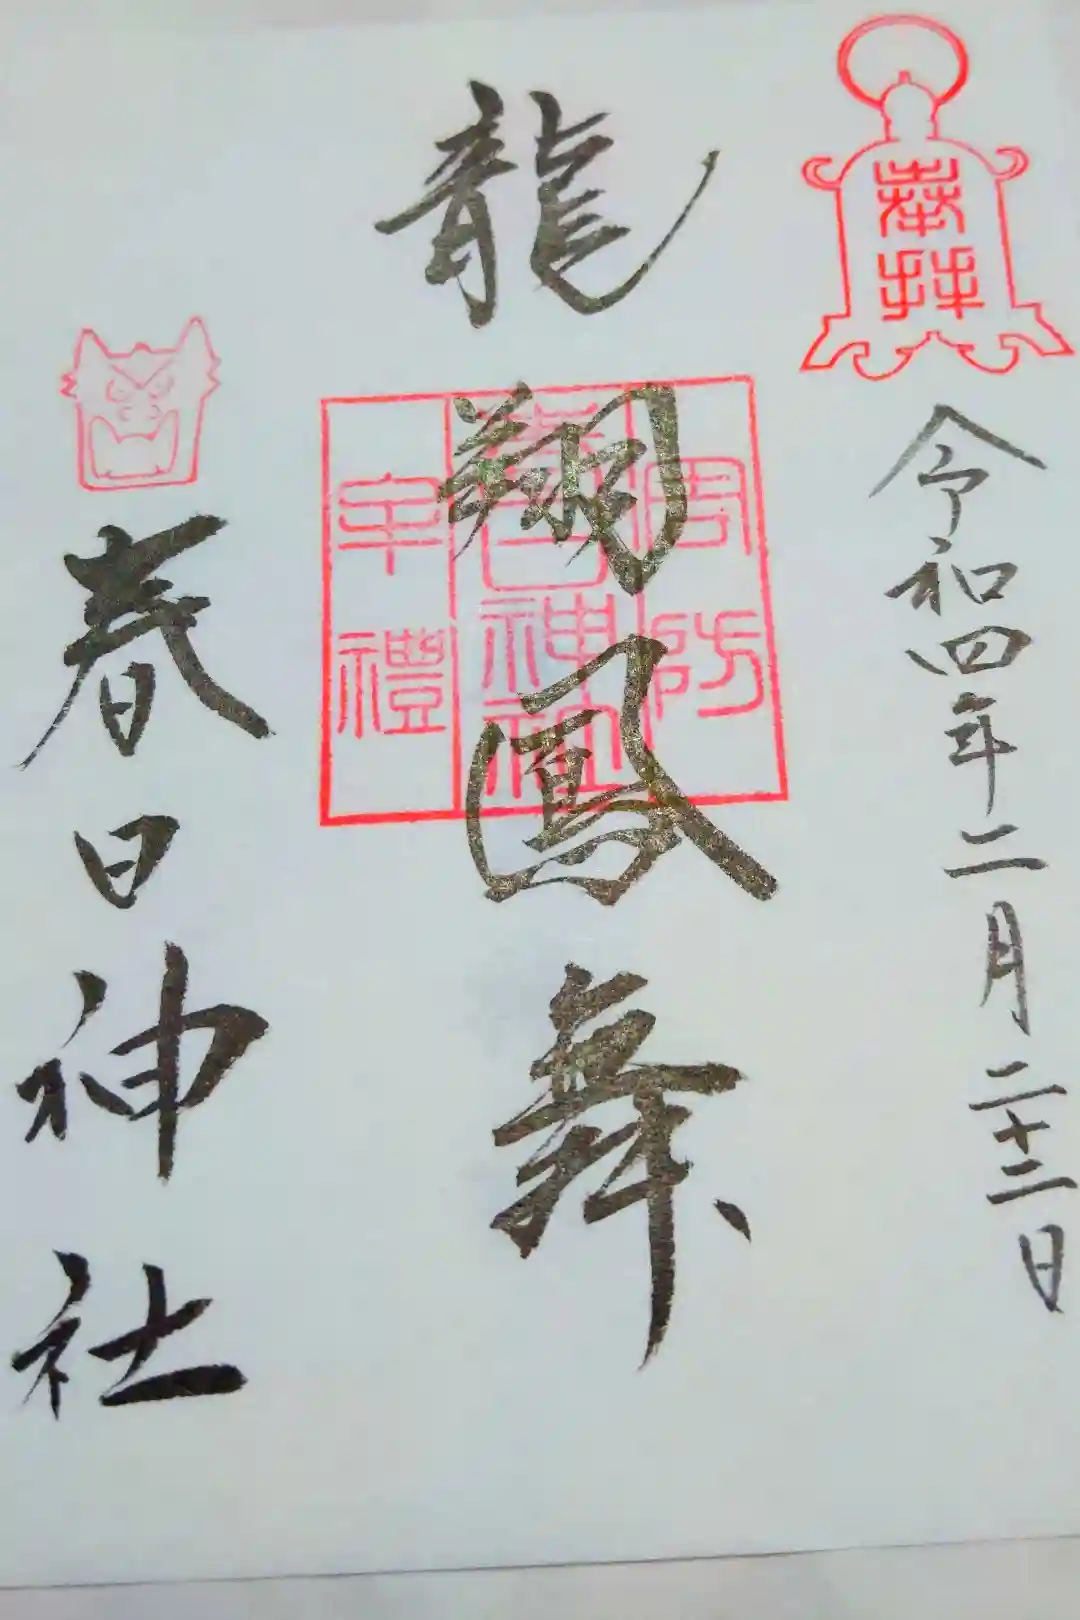 奉拝
令和四年二月二十二日
龍翔鳳舞
周防
春日神社
牟禮
春日神社